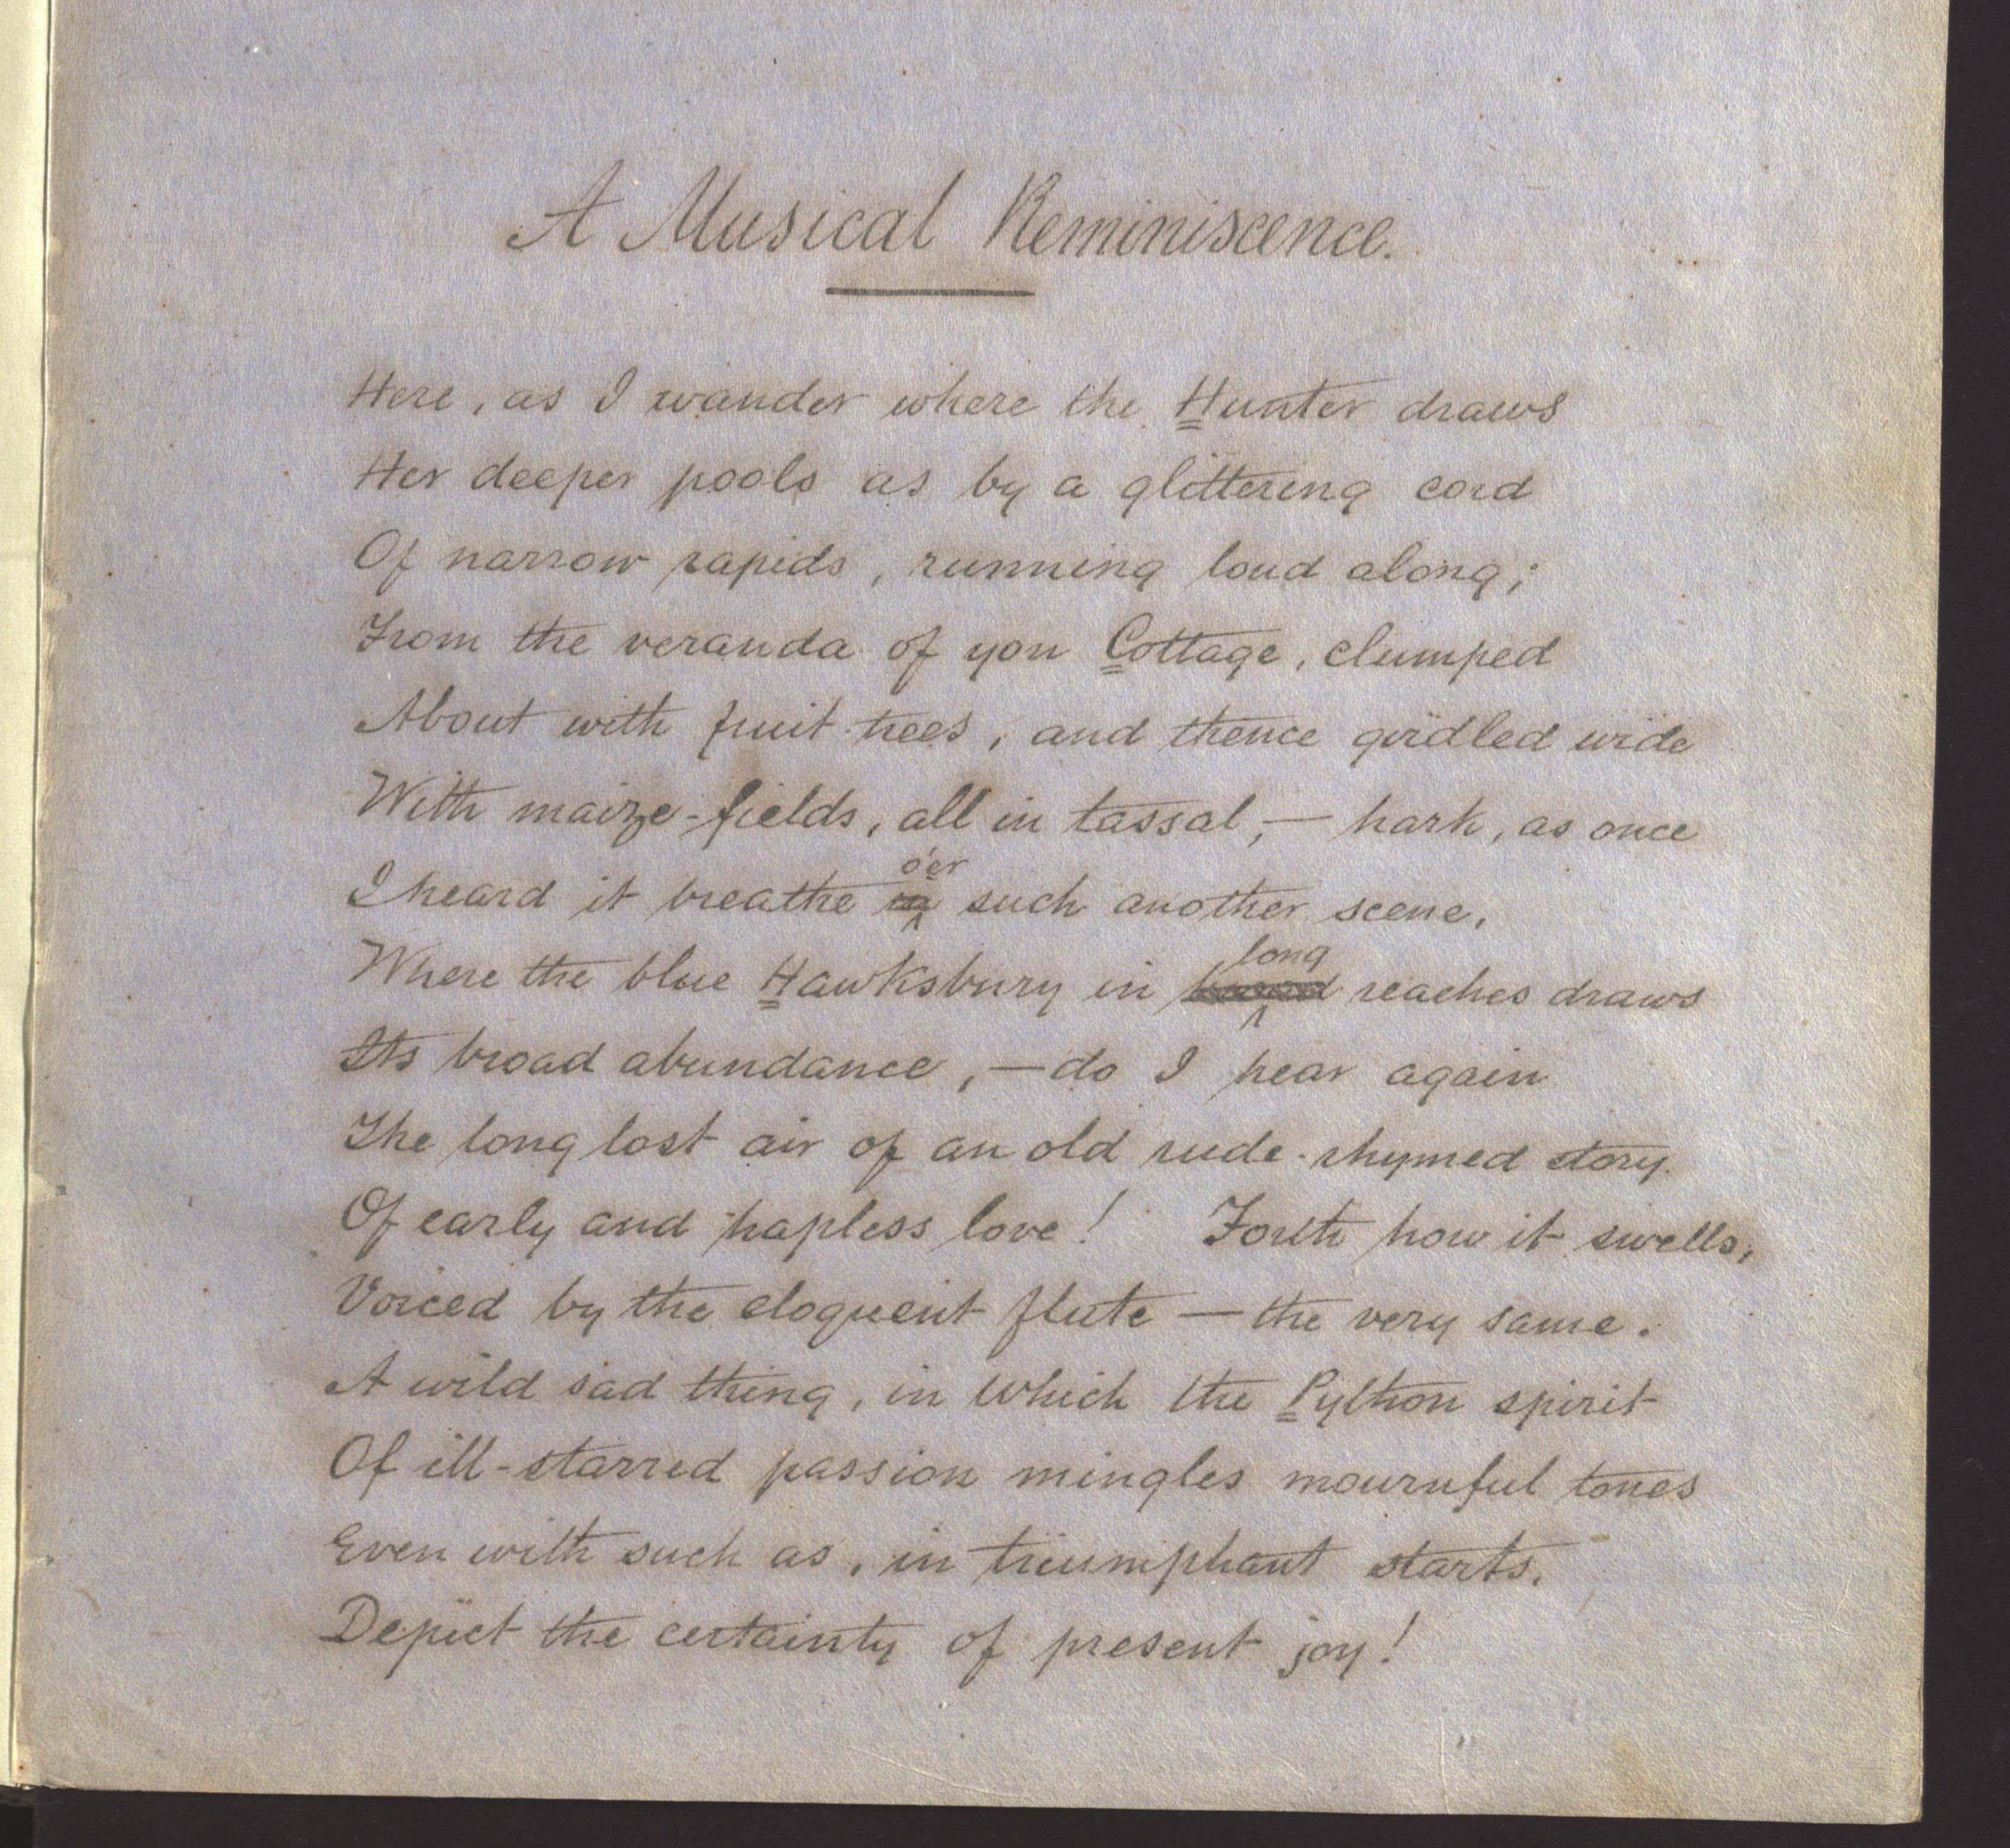 A Musical Reminiscence.
Here, as I wander where the Hunter draws
Her deeper pools as by a glittering cord
Of narrow rapids, running loud along;
From the veranda of yon Cottage, clumped
About with fruit-trees, and thence girdled wide
With maize-fields, all in tassal,— hark, as once
o'er
I heard it breathe in such another scene,
long
Where the blue Hawksbury in broad reaches draws
Its broad abundance,—do I hear again
The long lost air of an old rude-rhymed story
Of early and hapless love! Forth how it swells,
Voiced by the eloquent flute — the very same.
A wild sad thing, in which the Python spirit
Of ill-starred passion mingles mournful tones
Even with such as, in triumphant starts,
Depict the certainty of present joy!